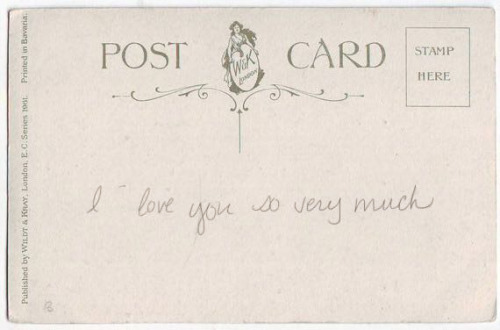 POST CARD
W&K
LONDON
STAMP
HERE
I love you so very much
Published by WILDT & KRAY, London, E.C Series 1991. Printed in Bavaria.